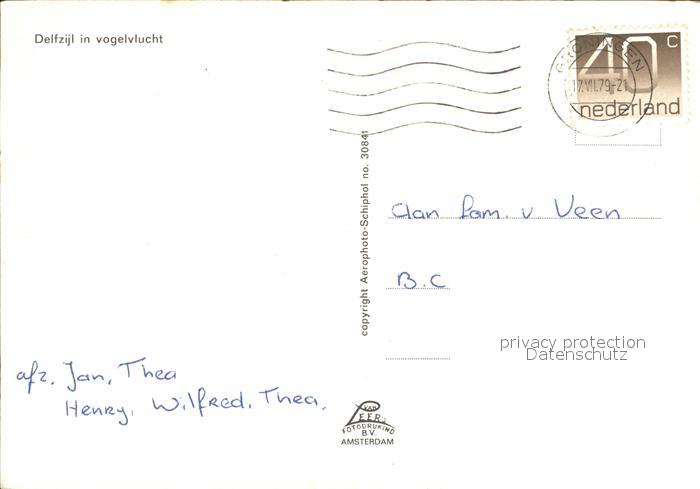 Delfzijl in vogelvlucht
GRONINGEN
17.VII.79-21
40 c
nederland
copyright Aerophoto-Schiphol no. 30841
Aan fam. v Veen
B.C
privacy protection
Datenschutz
afz. Jan, Thea
Henry, Wilfred, Thea.
VAN
LEER'S
FOTODRUKIND
B.V.
AMSTERDAM